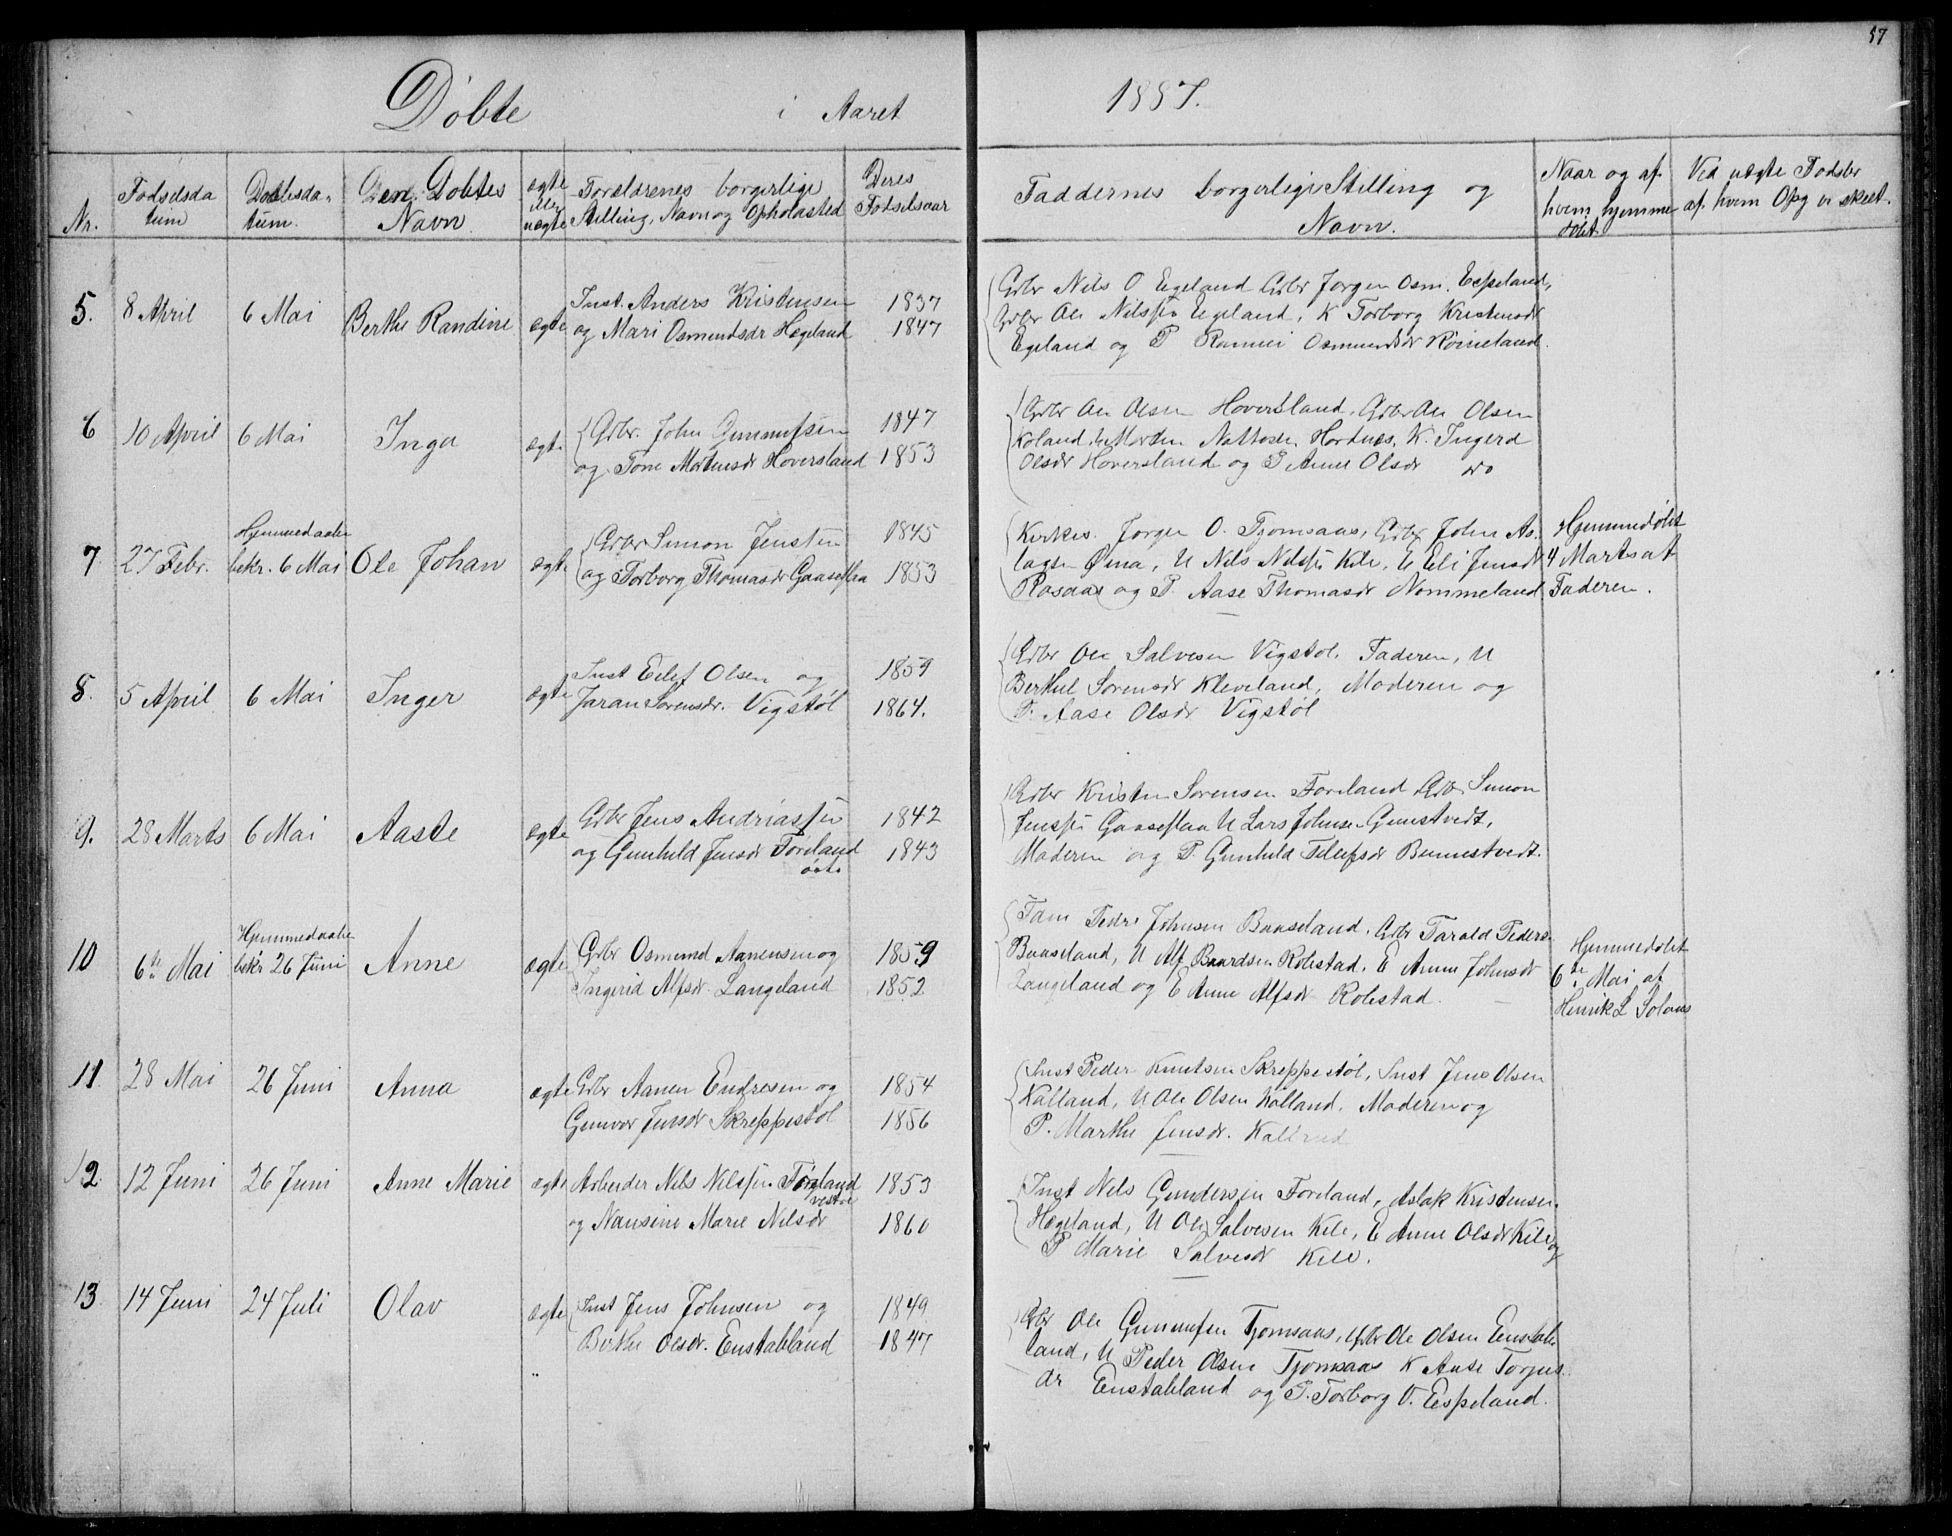 57
Døbte i Aaret 1887.
Nr. Fødselsda tum Døbelsda- tum. Den Døbtes Navn ægte eller uægte Forældrenes borgerlige Stilling, Navn og Opholdsted Deres Fødselsaar Faddernes borgerlige Stilling og Navn. Naar og af hvem hjemme døbt Ved uægte Fødsler af hvem Opg er skeet.
5. 8 April 6 Mai Berthe Randine ægte Inst. Anders Kristensen 1837
og Mari Osmundsdr Hægeland 1847
Grbr Nils O Egeland Grbr Jørgen Osm. Espeland,
Grbr Ole Nilssen Egeland, K Torborg Kristensdr
Egeland og P Rannei Osmundsdr Røineland.
6 10 April 6 Mai Inga ægte Grbr. John Gunnufsen 1847
og Tone Mortensdr Hoversland 1853
Grbr Ole Olsen Hoversland, Grbr Ole Olsen
Koland, Morten Hordnes, K. Ingerd
Olsdr Hoversland og P Anne Olsdr do
7 27 Febr. Hjemmedaaben bekr. 6 Mai Ole Johan ægte Grbr Simon Jenssen 1845
og Torborg Thomasdr Gaaseflaa 1853
Kirkes. Jørgen O. Tjomsaas, Grbr John As-
lagsen Øina, U Nils Nilssen Kile, U Eli Jensdr
Rosaas og P. Aase Thomasdr Nommeland
Hjemmedøbt
4 Marts af
Faderen.
8. 5 April 6 Mai Inger ægte Inst Eilef Olsen og 1859
Jaran Sørensdr. Vigstøl 1864.
Grbr Ole Salvesen Vigstøl. Faderen, U
Berthel Sørensdr Kleveland, Moderen og
P. Aase Olsdr Vigstøl
9. 28 Marts 6 Mai Aaste ægte Grbr Jens Andriassen 1842
og Gunhild Jensdr Føreland 1843
østre
Grbr Kristen Sørensen Føreland, Grbr Simon
Jenssen Gaaseflaa U Lars Johnsen Gumstvedt,
Moderen og P. Gunhild Tellefsdr Bunnestvedt.
10 6te Mai Hjemmedaaben bekr 26 Juni Anne ægte Grbr Osmund Aanensen og 1859
Ingerid Alfsdr. Langeland 1852
Peder Johnsen Baaseland, Grbr Tarald Peders.
Baaseland, U Alf Baardsen Robstad, E Anne Johnsdr
Langeland og E Anne Alfsdr Robstad.
Hjemmedøbt
6te Mai af
Henrik L Solaas
11 28 Mai 26 Juni Anna ægte Grbr Aanen Endresen og 1854
Gunvor Jensdr Skreppestøl 1856
Inst Peder Knutsen Skreppestøl, Inst Jens Olsen
Kalland, U Ole Olsen Kalland. Moderen og
P. Marthe Jensdr. Kalland
12. 12 Juni 26 Juni Anne Marie ægte Arbeider Nils Nilssen Føreland 1853
vestre
og Nansine Marie Nilsdr 1860
Inst Nils Gundersen Føreland, Aslak Kristensen
Hægeland, U Ole Salvesen Kile, E Anne Olsdr Kile og
P Marie Salvesdr Kile.
13 14 Juni 24 Juli Olav ægte Inst Jens Johnsen og 1849
Birthe Olsdr. Eustabland 1847
Grbr Ole Gunnufsen Tjomsaas, Grbr Ole Olsen Eustab-
land, U Peder Olsen Tjomsaas K Aase Torjus-
dr Eustabland og P. Torborg O. Espeland.